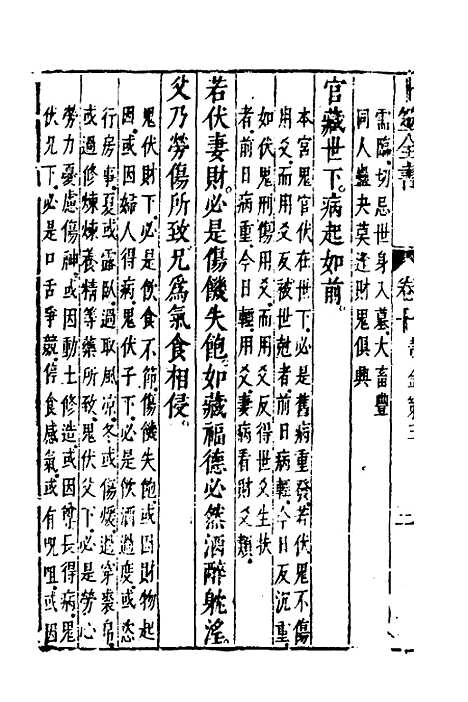 卜筮全書 卷十 黃金策三 二
需臨切忌世身入墓大畜豐
同人蠱夬莫逢財鬼俱興
官藏世下病起如前
本宮鬼官伏在世下必是舊病重發若伏鬼不傷
用爻而用爻反被世尅者前日病輕今日反沉重
如伏鬼刑傷用爻而用爻反得世爻生扶
者前日病重今日輕用爻妻病看財爻類
若伏妻財必是傷饑失飽如藏福德必然酒醉躭淫
父乃勞傷所致兄爲氣食相侵
鬼伏財下必是飲食不節傷饑失飽或因財物起
因或因婦人得病鬼伏子下必是飲酒過度或恣
行房事夏或露臥過取風凉冬或傷煖過穿裘帛
或過修煉養精等藥所致鬼伏父下必是勞心
勞力憂慮傷神或因動土修造或因尊長得病鬼
伏兄下必是口舌爭競停食感氣或有咒咀或因